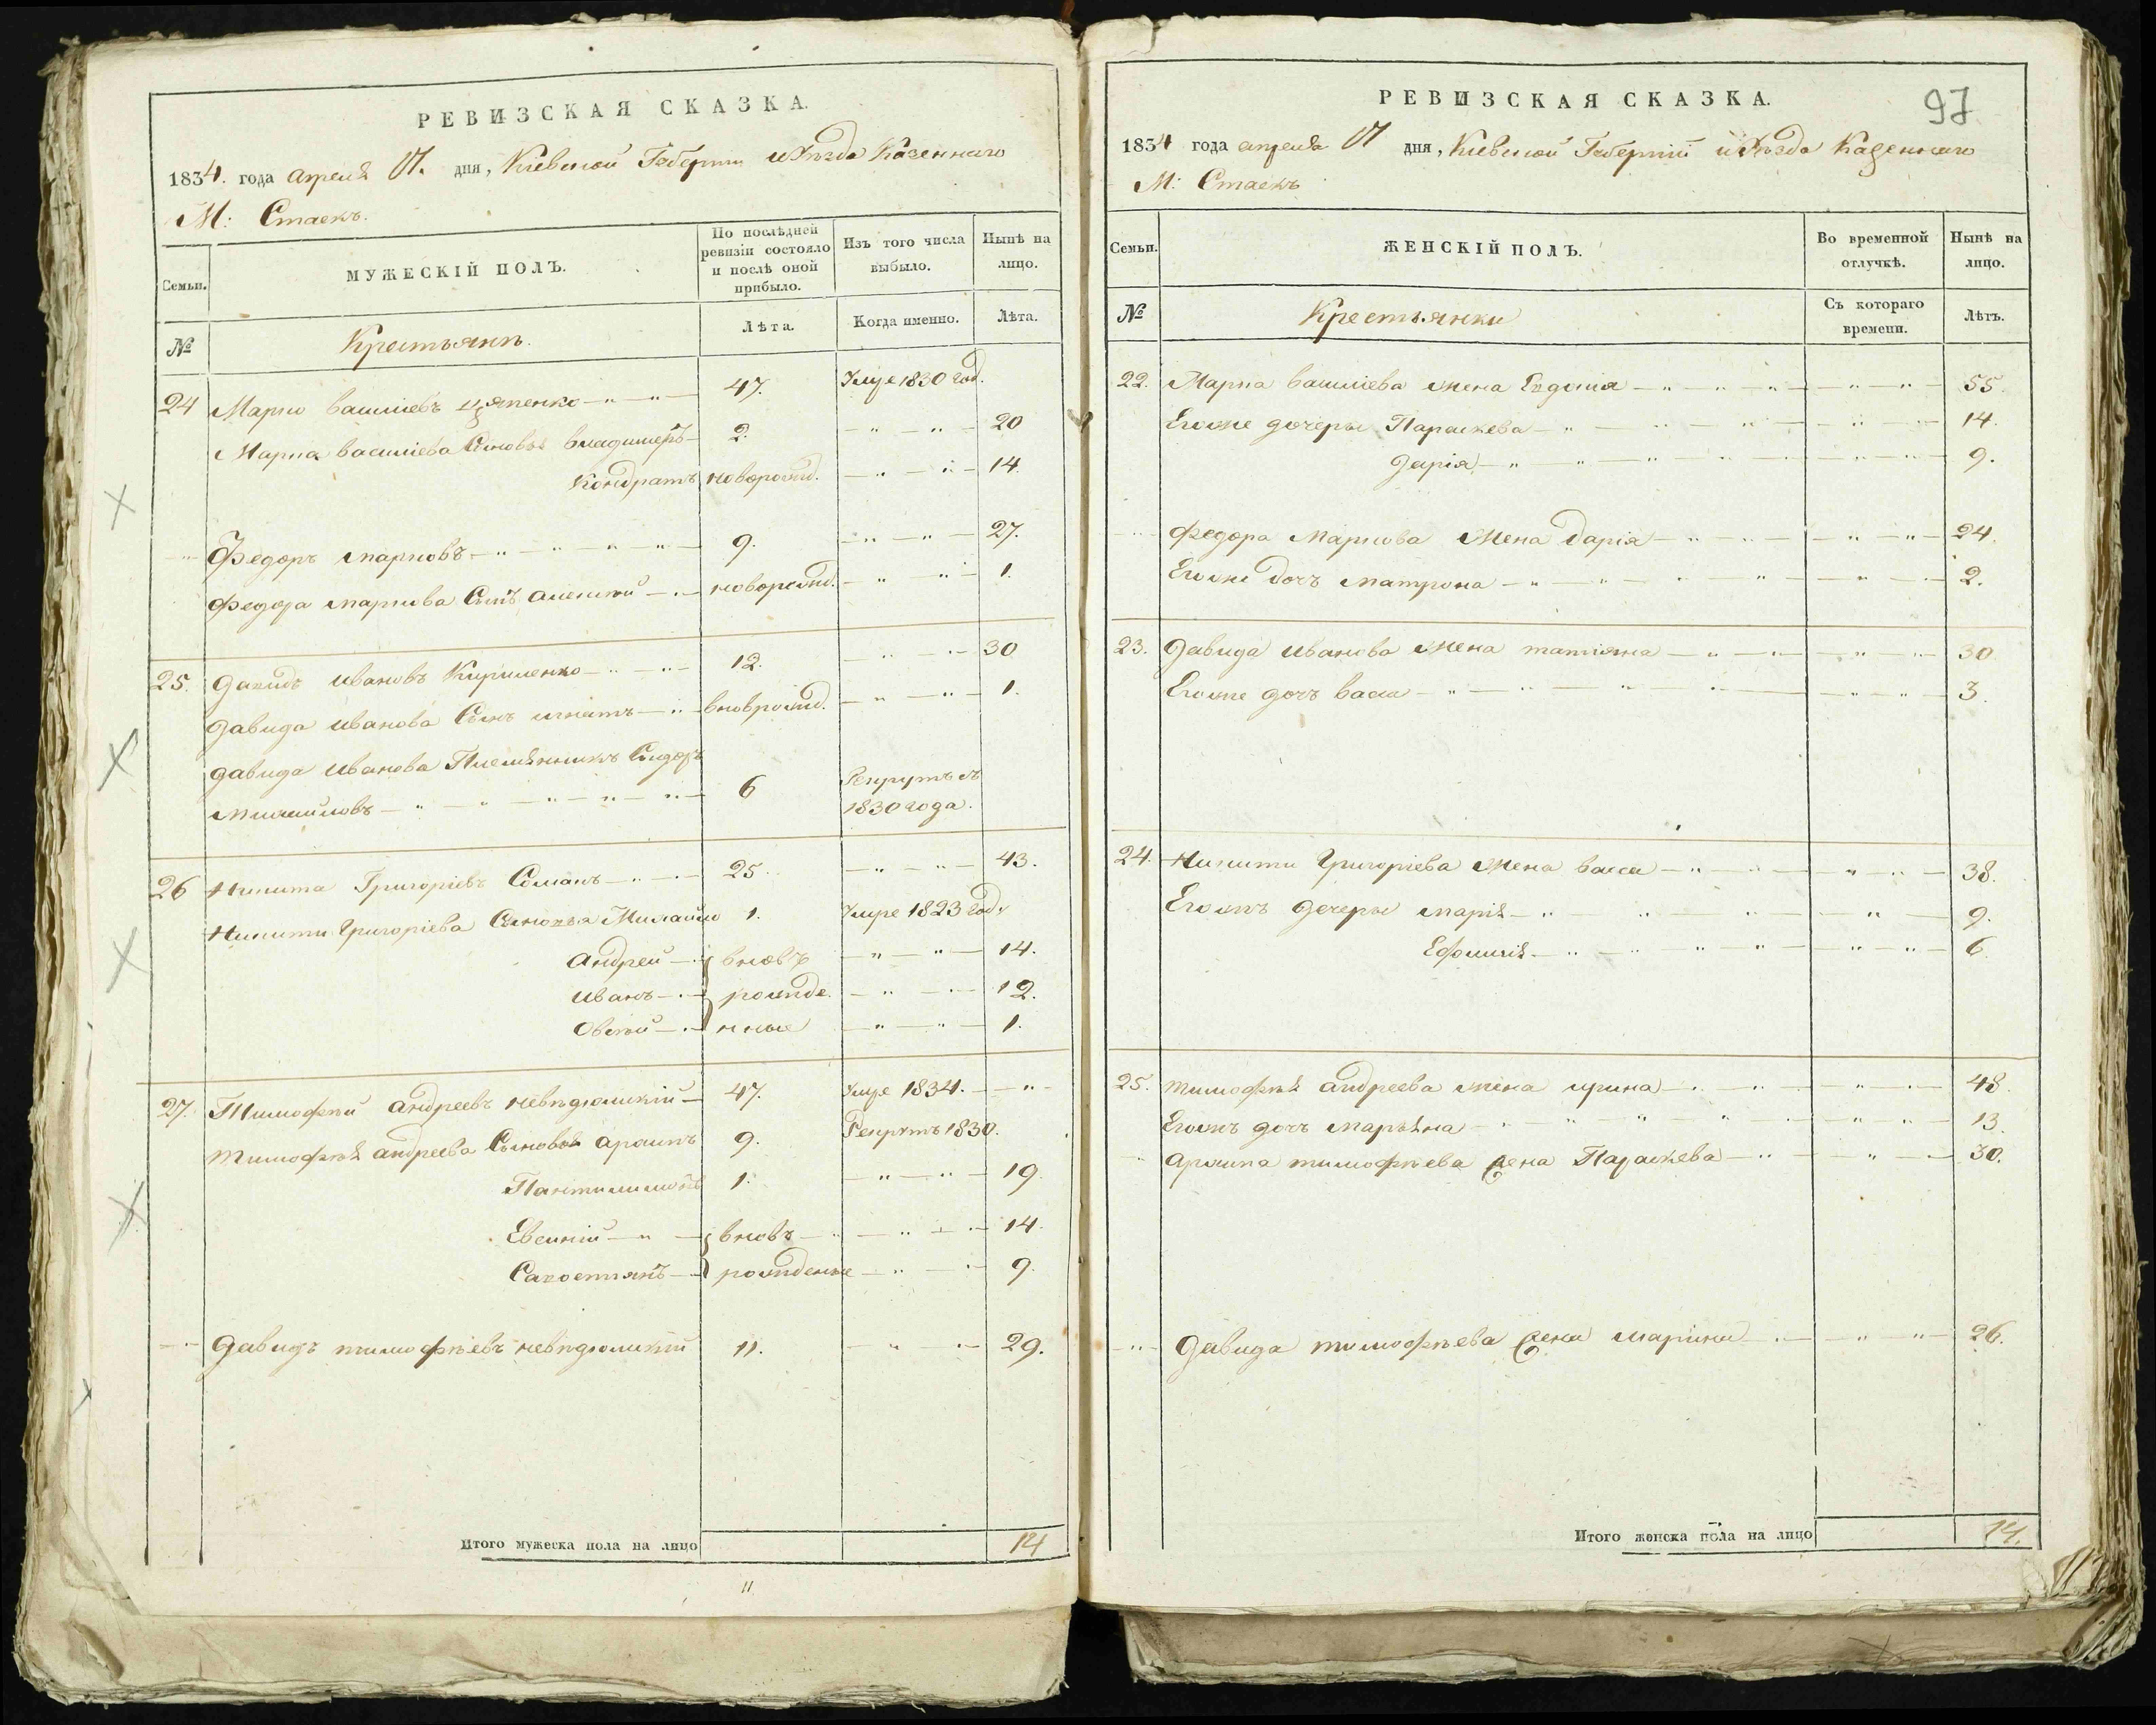 РЕВИЗСКАЯ СКАЗКА.
1834. года апреля 17. дня, Кіевской Губерніи и Уѣзда Казеннаго
М: Стаекъ.
Семьи.
МУЖЕСКІЙ ПОЛЪ.
По послѣдней ревизіи состояло и послѣ оной прибыло.
Изъ того числа выбыло.
Нынѣ на лицо.
№
Крестьянъ.
Лѣта.
Когда именно.
Лѣта.
24 Марко василіевъ 47. Умре 1830 год.
Марка василіева Сыновья владимеръ 2. 20
Кондратъ новорожд. 14.
Федоръ марковъ 9. 27.
Федора маркова Сынъ алексѣй новорожд. 1.
25. Давидъ ивановъ Кириленко 12. 30
Давида иванова Сынъ игнатъ вноврожд. 1.
Давида иванова Племянникъ Сидоръ
михайловъ 6 Рекрутъ съ 1830 года.
26 Никита Григоріевъ 25. 43.
Никиты Григоріева Сыновья Михайло 1. Умре 1823 год.
Андрей вновъ 14.
иванъ рожде. 12.
нные 1.
27. Тимофѣй андреевъ 47. Умре 1834.
Тимофѣя андреева Сыновья архипъ 9. Рекрутъ 1830.
Пантилимонъ 1. 19.
Евсикій вновъ 14.
Савостиянъ рожденые 9.
Давидъ тимофѣевъ 11. 29.
Итого мужеска пола на лицо 14
11
РЕВИЗСКАЯ СКАЗКА.
97
1834 года апреля 17 дня, Кіевской Губерніи и Уѣзда Казеннаго
М: Стаекъ
Семьи.
ЖЕНСКІЙ ПОЛЪ.
Во временной отлучкѣ.
Нынѣ на лицо.
№
Крестьянки
Съ котораго времени.
Лѣтъ.
22. Марка василіева жена Евдокія 55.
Егоже дочеры Параскева 14.
Дарія 9.
Федора Маркова Жена Дарія 24.
Егоже дочъ матрона 2.
23. Давида иванова жена татіяна 30
Егоже дочъ васса 3.
24. Никиты Григоріева Жена васса 38.
Егожъ дочеры марія 9.
Ефимія 6.
25. тимофѣя андреева жена ирина 48.
Егожъ дочъ марьяна 13.
архипа тимофѣева жена Параскева 30.
Давида тимофѣева жена марина 26.
Итого женска пола на лицо 14.